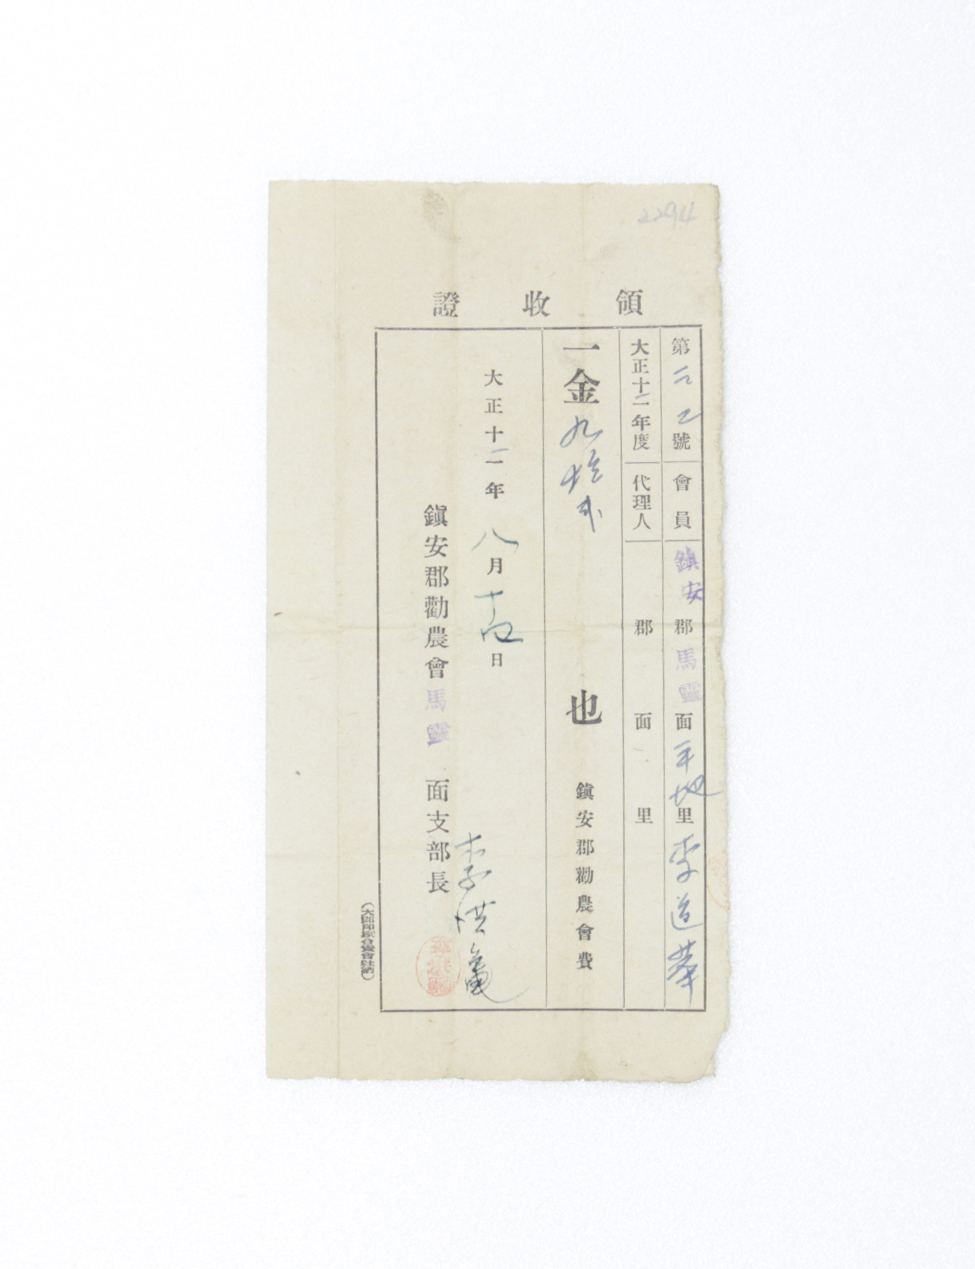 2294
領收證
第二二號 會員 鎭安郡馬靈面平地里 李道華
大正十二年度 代理人 郡 面 里
一金九拾弐 也 鎭安郡勸農會費
大正十二年八月十四日
鎭安郡勸農會馬靈面支部長
李洪龜